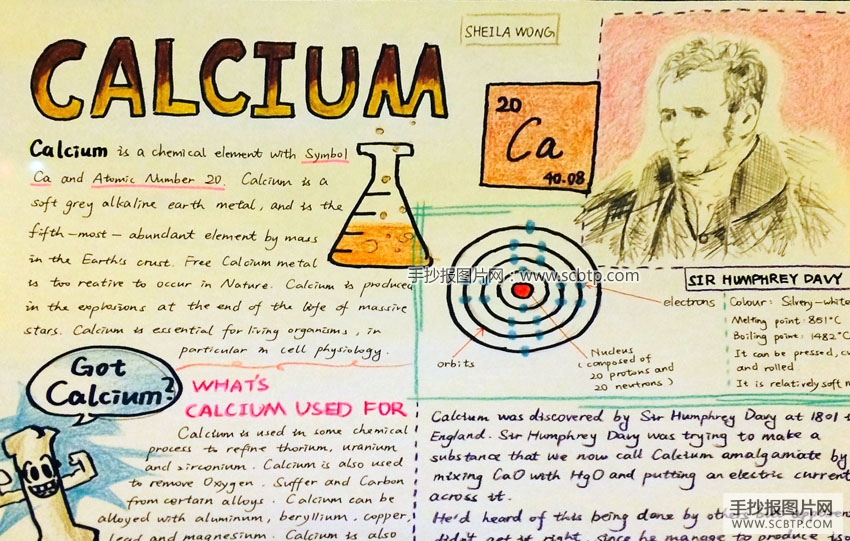 SHEILA WONG
CALCIUM
20
Ca
40.08
Calcium is a chemical element with Symbol
Ca and Atomic Number 20. Calcium is a
soft grey alkaline earth metal, and is the
fifth-most-abundant element by mass
in the Earth's crust. Free Calcium metal
is too reative to occur in Nature. Calcium is produced
in the explosions at the end of the life of massive
stars. Calcium is essential for living organisms, in
particular in cell physiology.
手抄报图片网:www.scbtp.com
SIR HUMPHREY DAVY
electrons
orbits
Nucleus
(composed of
20 protons and
20 neutrons)
Colour: Silvery-white
Melting point: 851°C
Boiling point: 1482°C
It can be pressed,
and rolled
It is relatively soft
Got
Calcium?
WHAT'S
CALCIUM USED FOR
Calcium is used in some chemical
process to refine thorium, uranium
and zirconium. Calcium is also used
to remove Oxygen. Suffer and Carbon
from certain alloys. Calcium can be
alloyed with aluminum, beryllium. copper,
lead and magnesium. Calcium is also
Calcium was discovered by Sir Humphrey Davy at 1801
England. Sir Humphrey Davy was trying to make a
substance that we now call Calcium amalgamate by
mixing CaO with HgO and putting an electric current
across it.
He'd heard of this being done by
didn't get it right, since he manage to produce
手抄报图片网
WWW.SCBTP.COM